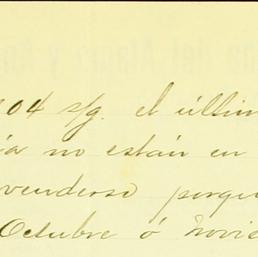 104 s/g. el últim
ía no están en
venderse porqu
Octubre ó Novie